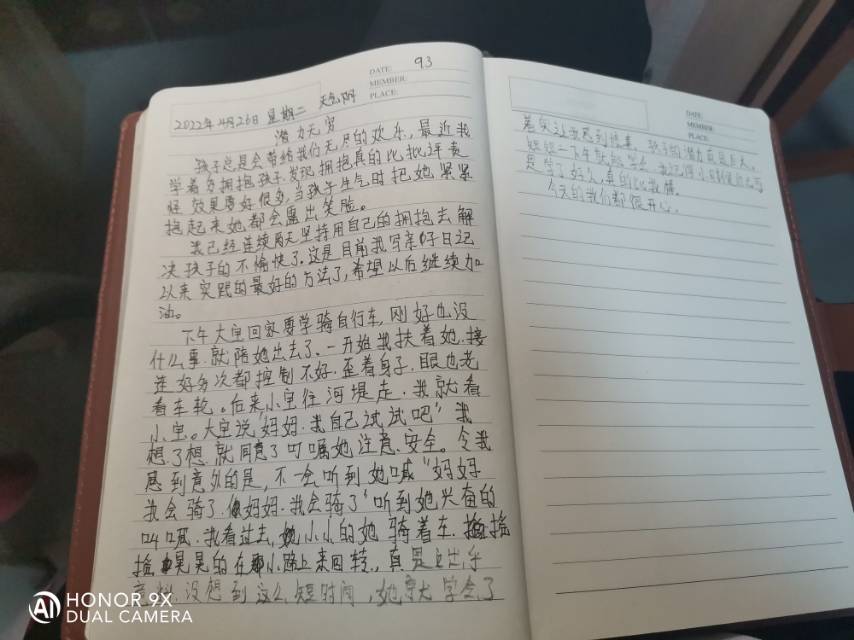 DATE: 93
MEMBER:
PLACE:
2022年4月26日 星期二 天气阴
潜力无穷
孩子总是会带给我们无尽的欢乐,最近我
学着多拥抱孩子.发现拥抱真的比批评责
怪效果要好很多,当孩子生气时把她紧紧
抱起来她都会露出笑脸。
我已经连续两天坚持用自己的拥抱去解
决孩子的不愉快了.这是目前我写亲子日记
以来实践的最好的方法了,希望以后继续加
油。
下午大宝回家要学骑自行车,刚好也没
什么事.就陪她出去了、一开始我扶着她.接
连好多次都控制不好.歪着身子.眼也老
看车轮。后来小宝往河堤走.我就看
小宝。大宝说"妈妈.我自己试试吧"我
想了想.就同意了叮嘱她注意.安全。令我
感到意外的是,不一会听到她喊"妈妈
我会骑了.妈妈.我会骑了"听到她兴奋的
叫喊.我看过去,小小的她骑着车.摇摇
晃晃的在小路上来回转.,真是出乎
意料.没想到这么短时间,她学会了
DATE:
MEMBER:
PLACE:
着实让我感到惊喜。孩子的潜力真是巨大。
短短一下午就能学会.我记得小时候
是学了好久.真的
今天的我们都很开心。
HONOR 9X
DUAL CAMERA